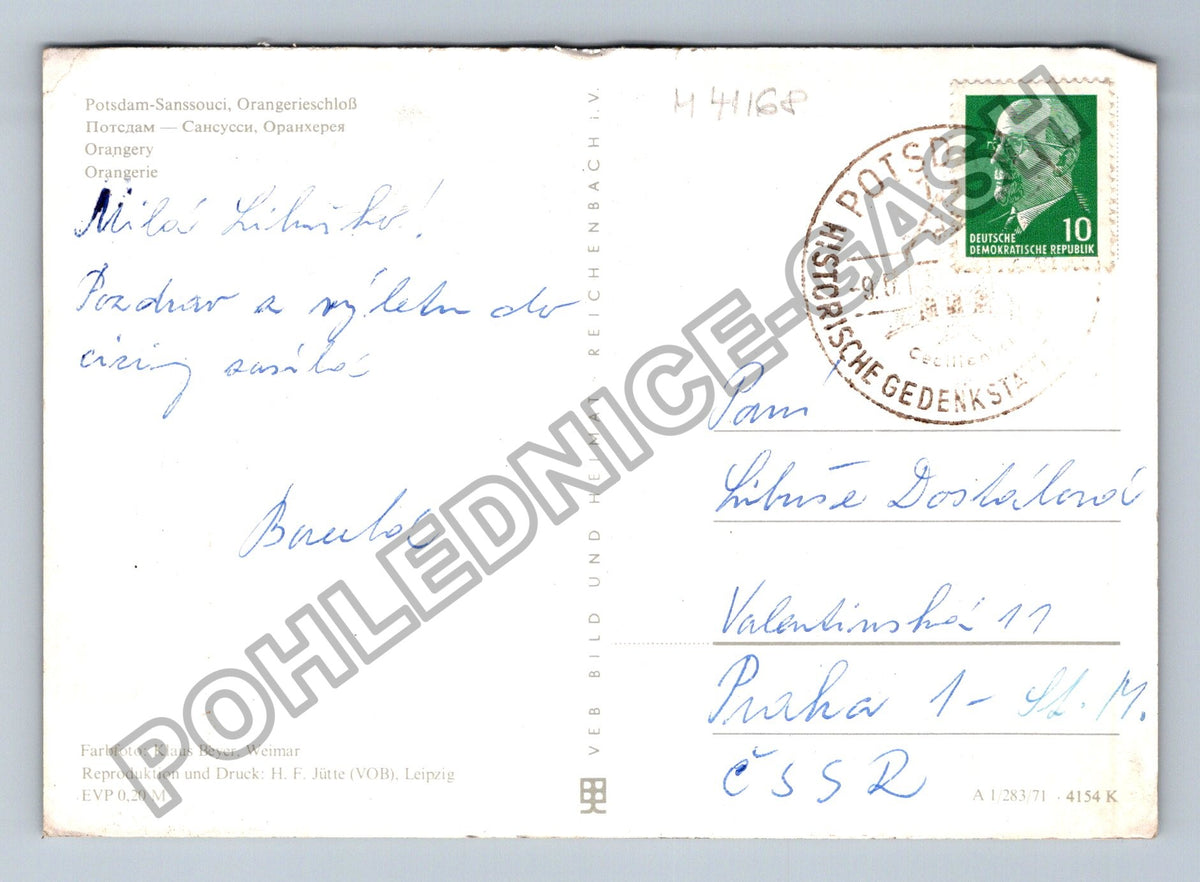 Potsdam-Sanssouci, Orangerieschloß
Потсдам — Сансусси, Оранжерея
Orangery
Orangerie
Milá Libuško!
Pozdrav z výletu do
ciziny zasílá
M 41168
POTSD
HISTORISCHE GEDENKST
Cecilien
DEUTSCHE
DEMOKRATISCHE REPUBLIK
10
Paní
Libuše Dostálová
Valentinská 11
Praha 1 - St. M.
ČSSR
VEB BILD UND HEIMAT REICHENBACH i.V.
Farbfoto: Klaus Beyer, Weimar
Reproduktion und Druck: H. F. Jütte (VOB), Leipzig
EVP 0,20 M
A 1/283/71 · 4154 K
POHLEDNICE-GASH